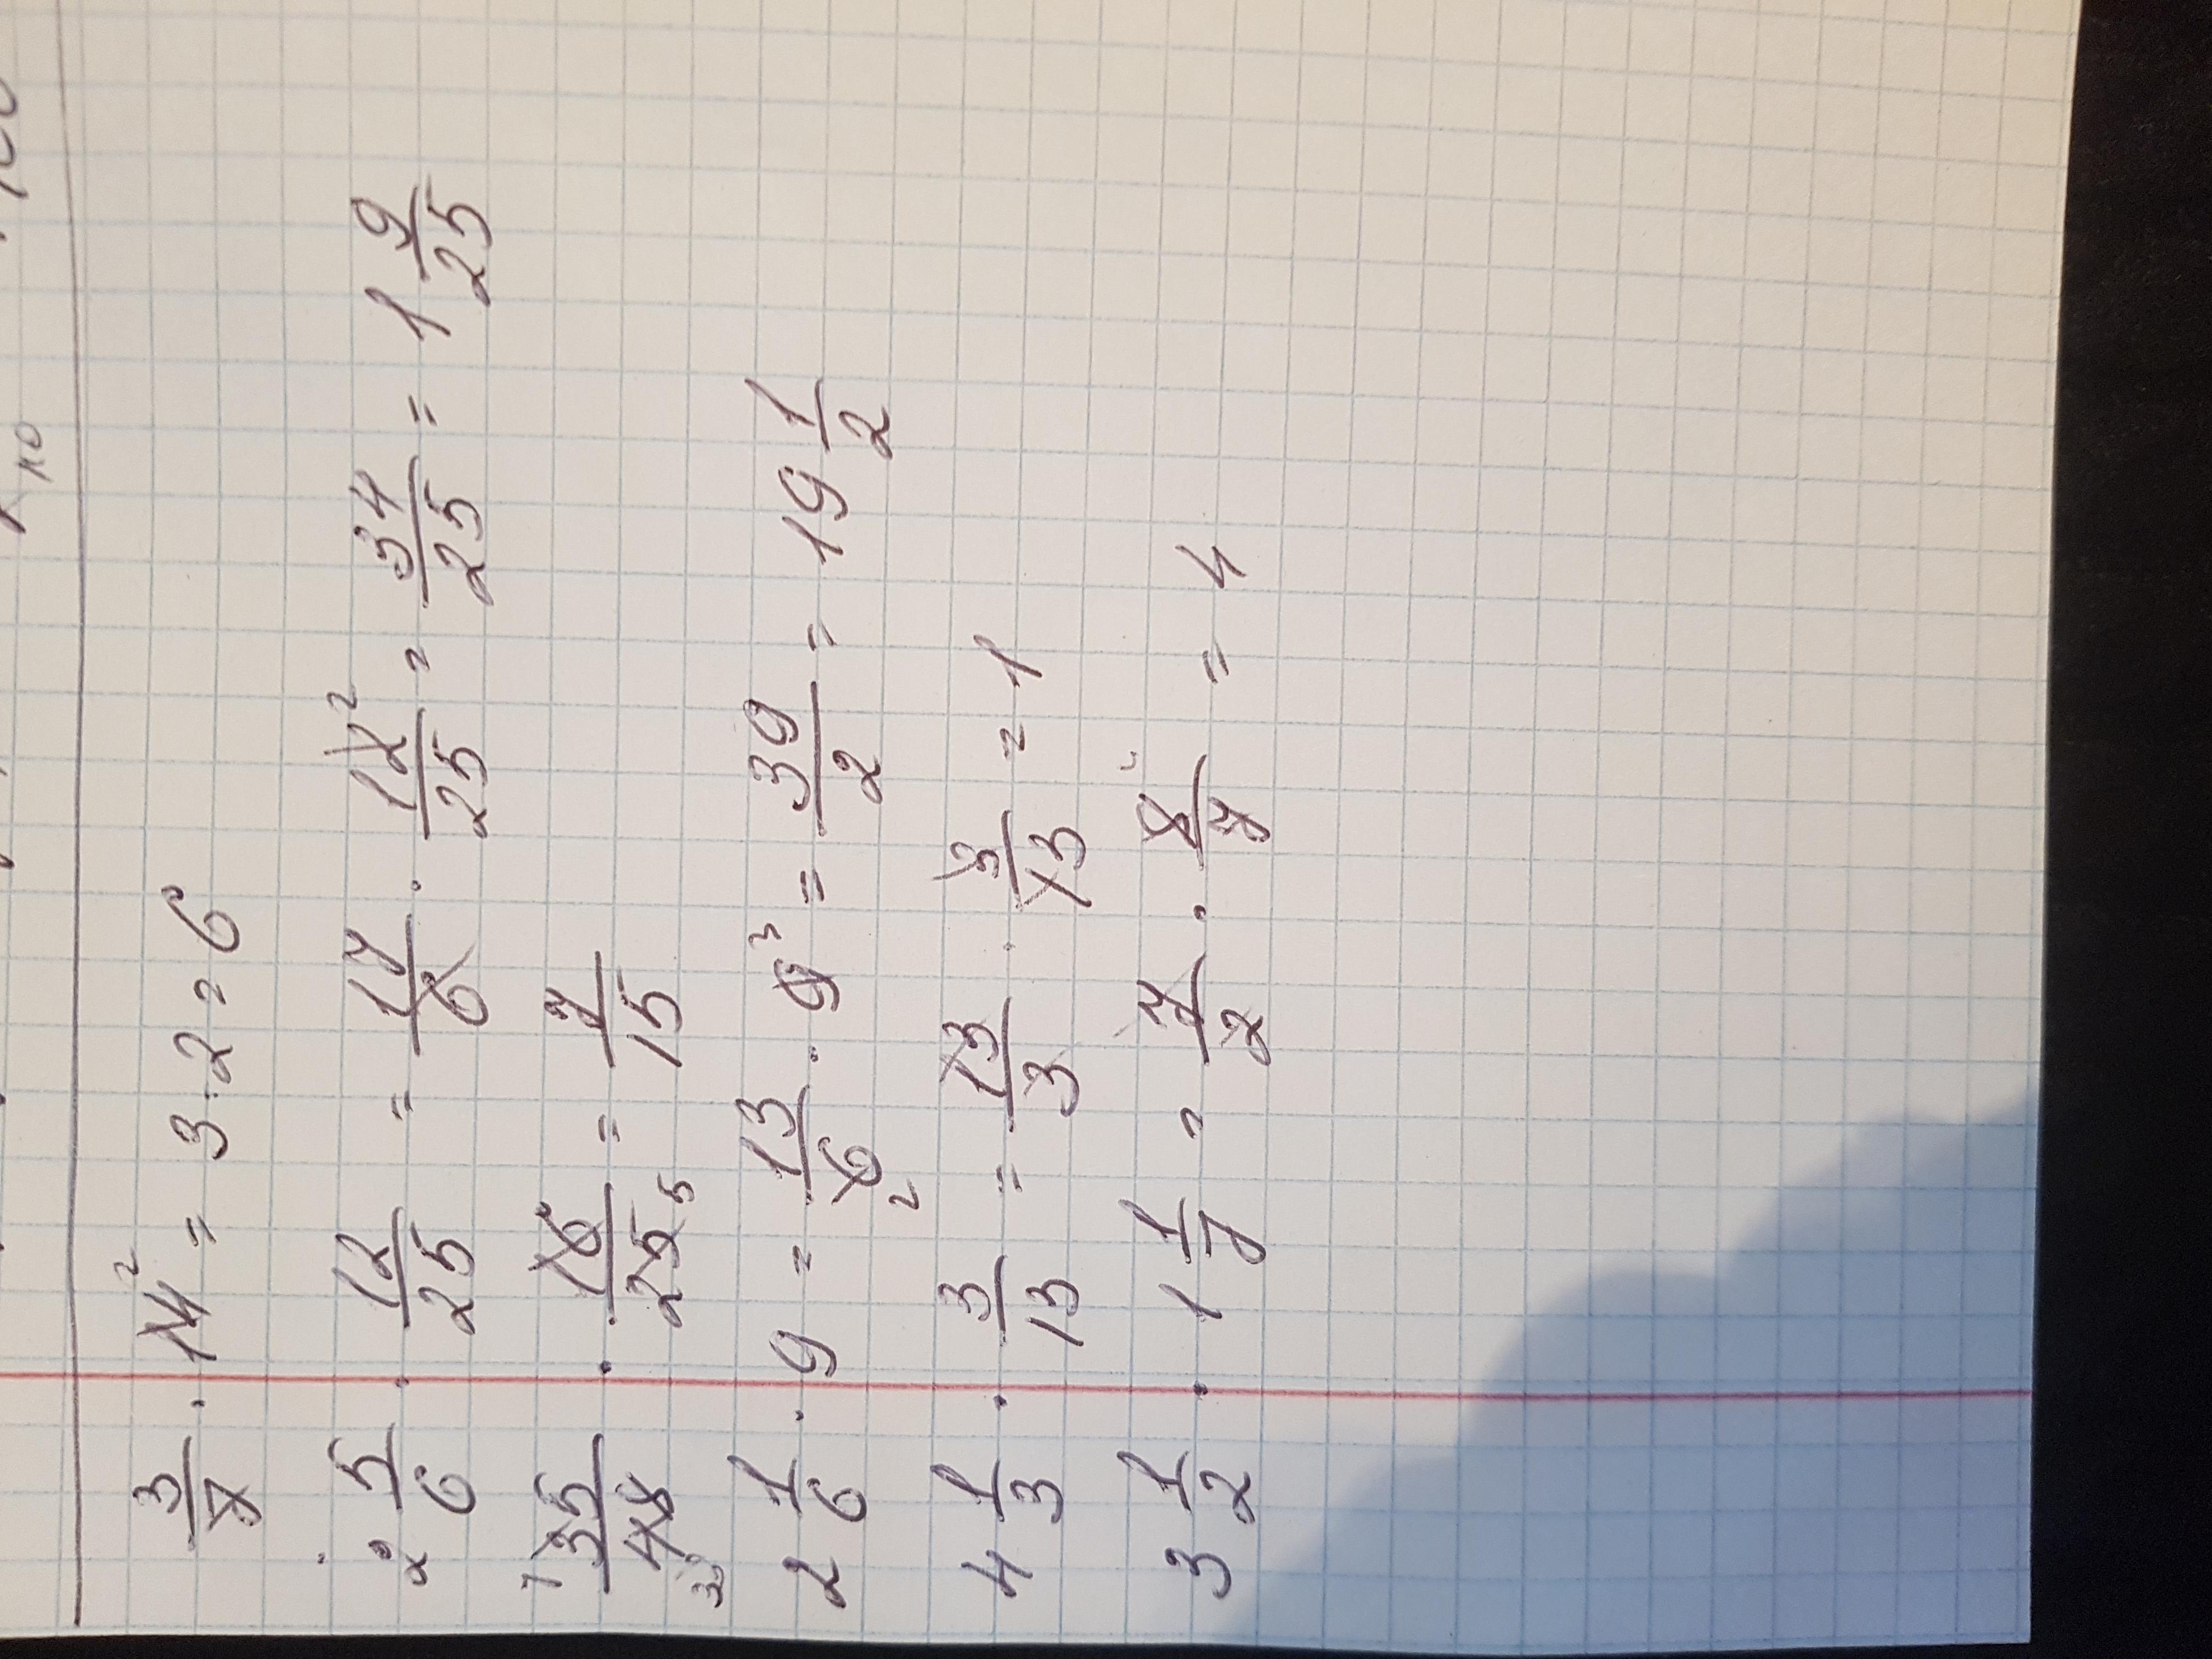 3/7 · 14² = 3 · 2 = 6
2 5/6 · 12/25 = 17/6 · 12²/25 = 34/25 = 1 9/25
⁷35/48₃ · 16/25₅ = 7/15
2 1/6 · 9 = 13/6₂ · 9³ = 39/2 = 19 1/2
4 1/3 · 3/13 = 13/3 · 3/13 = 1
3 1/2 · 1 1/7 = 7/2 · 8/7 = 4